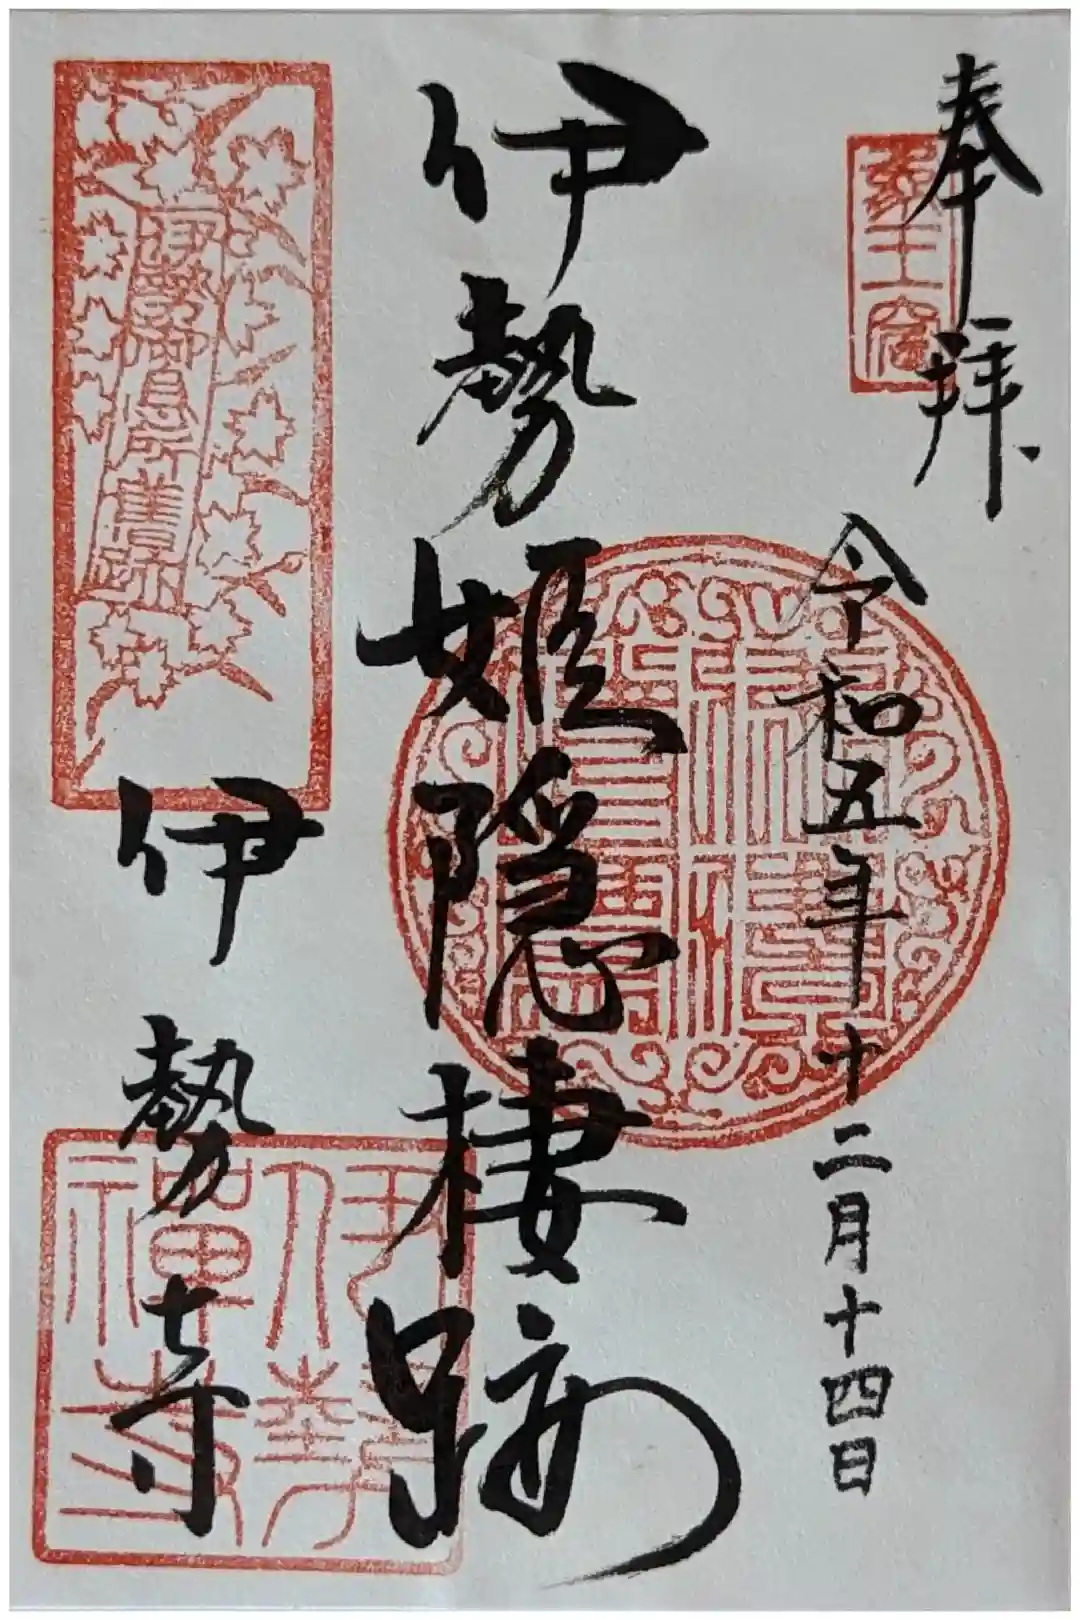 奉拝
令和五年十二月十四日
伊勢姫隠棲跡
伊勢寺
伊勢禅寺